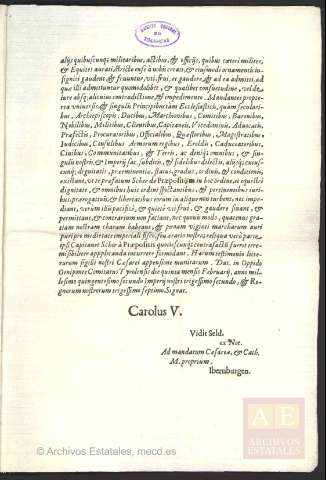 alijs quibuscunq; militaribus, actibus, & officijs, quibus cæteri milites,
& Equites aurati, stricto ense à nobis creati, & eiusmodi ornamentis in-
signiti gaudent, & fruuntur, uti, frui, et gaudere, & ad ea admitti, ad
quæ illi admittuntur quomodolibet, & qualibet consuetudine, vel de
iure absq; alicuius contradictione, & impedimento. Mandantes propte-
rea vniuersis, & singulis Principibus tam Ecclesiasticis, quàm seculari-
bus, Archiepiscopis, Ducibus, Marchionibus, Comitibus, Baronibus,
Nobilibus, Militibus, Clientibus, Capitaneis, Vicedominis, Aduocatis,
Præfectis, Procuratoribus, Officialibus, Quæstoribus, Magistratibus
Iudicibus, Consulibus Armorum regibus, Eroldis, Caduceatoribus,
Ciuibus Communitatibus, & Terris, ac deniq; omnibus, & sin-
gulis nostris, & Imperij sac. subditis, & fidelibus dilectis, alijsq; cuiuscunq;
dignitatis, preeminentiæ, status, gradus, ordinis, & conditionis,
existant, vt te præfatum Schor de Præpositijs in hoc ordine, ac equestri
dignitate, & omnibus huic ordini spectantibus, & pertinentibus iuri-
bus, prærogatiuis, & libertatibus rerum in aliquo non turbent, nec impe-
diant, verum illis pacificè, & quietè vti frui, & gaudere sinant, &
permittant, & contrarium non faciant, nec quouis modo, quatenus gra-
tiam nostram charam habeant, & pœnam viginti marcharum auri
puri pro medietate imperiali fisco, seu ærario nostro; reliqua verò parte
ipsi Capitaneo Schor à Præpositis quotiescunq; contrafactū fuerit irre-
misibiliter applicanda incurrere formidant. Harum testimonio litte-
rarum sigilli nostri Cesarei appensione munitarum. Dat. in Oppido
Oenipontè Comitatus Tyrolensis die quinta mensis Februarij, anno mil-
lesimo quingentesimo secundo Imperij nostri trigessimo secundo, & Re-
gnorum nostrorum trigessimo septimo. Signat.
Carolus V.
Vidit Seld.
ex Not.
Ad mandatum Cæsareæ, & Cath.
M. proprium.
Ibernburgen.
AE
ARCHIVOS
ESTATALES
© Archivos Estatales, mecd.es